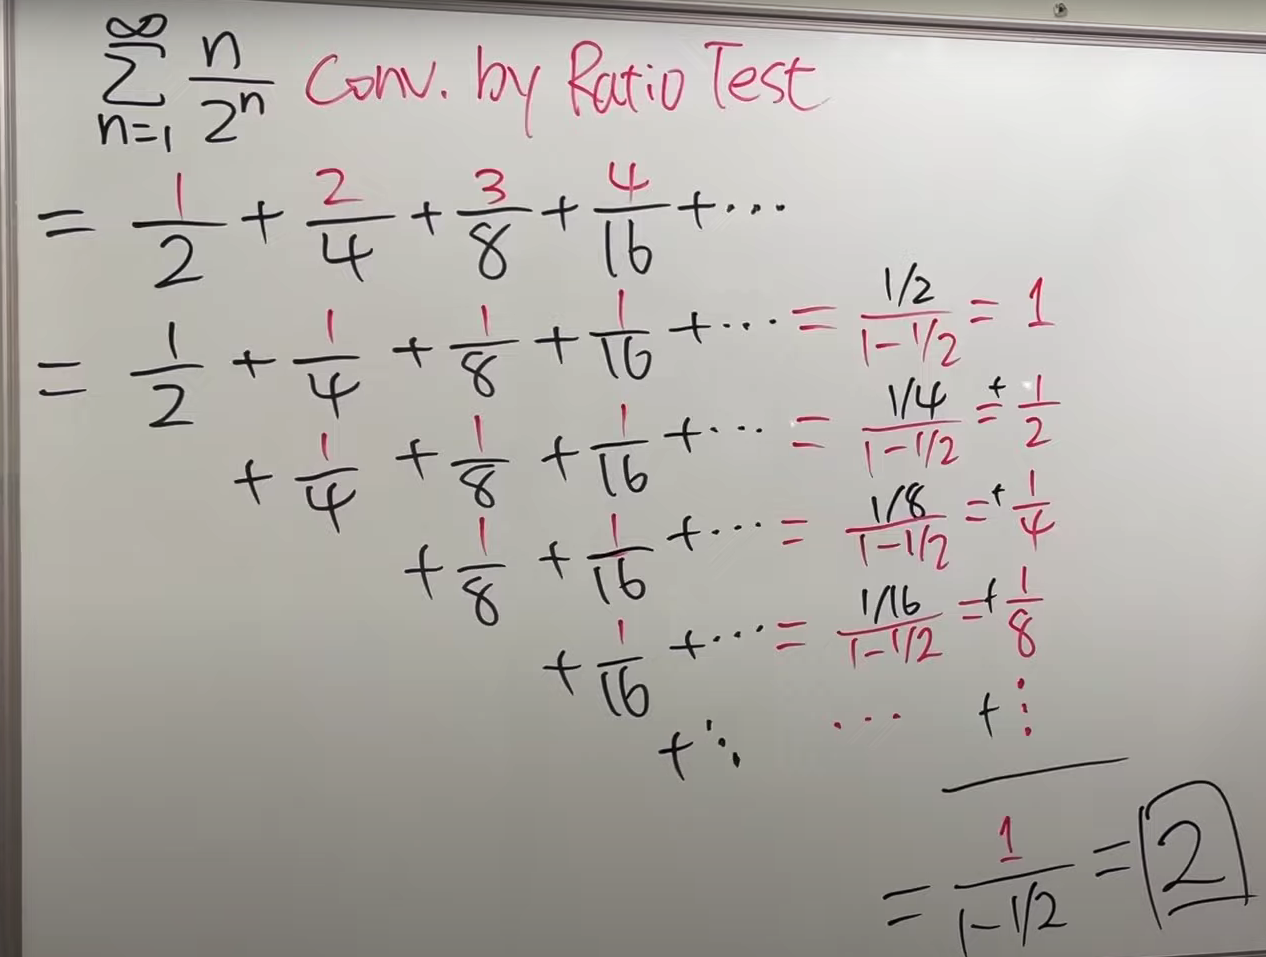 ∞
∑ n/2ⁿ Conv. by Ratio Test
n=1
= 1/2 + 2/4 + 3/8 + 4/16 + ...
= 1/2 + 1/4 + 1/8 + 1/16 + ... = (1/2)/(1-1/2) = 1
+ 1/4 + 1/8 + 1/16 + ... = (1/4)/(1-1/2) = + 1/2
+ 1/8 + 1/16 + ... = (1/8)/(1-1/2) = + 1/4
+ 1/16 + ... = (1/16)/(1-1/2) = + 1/8
+ ⋱ ... + ⋮
= 1/(1-1/2) = 2